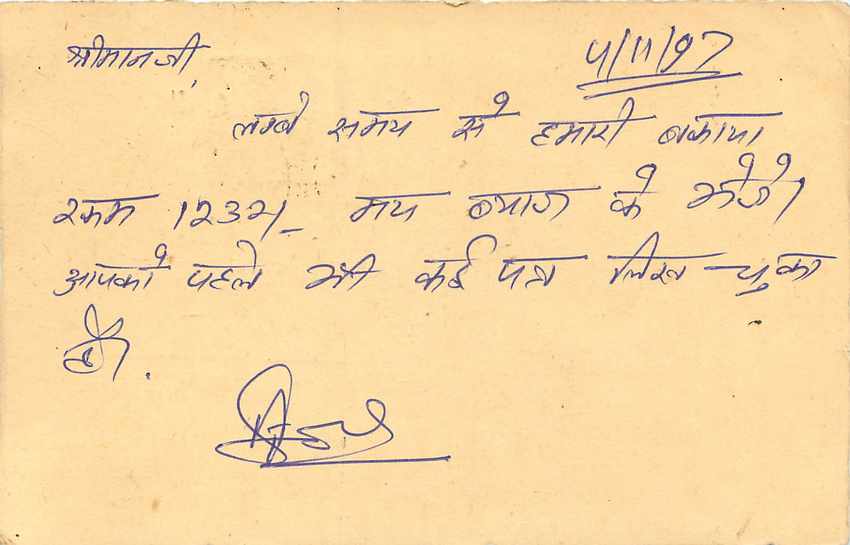 4/11/97
श्रीमानजी,
लम्बे समय से हमारी बकाया
रकम 1232/- मय ब्याज के भेजें।
आपको पहले भी कई पत्र लिख चुका
हूँ।